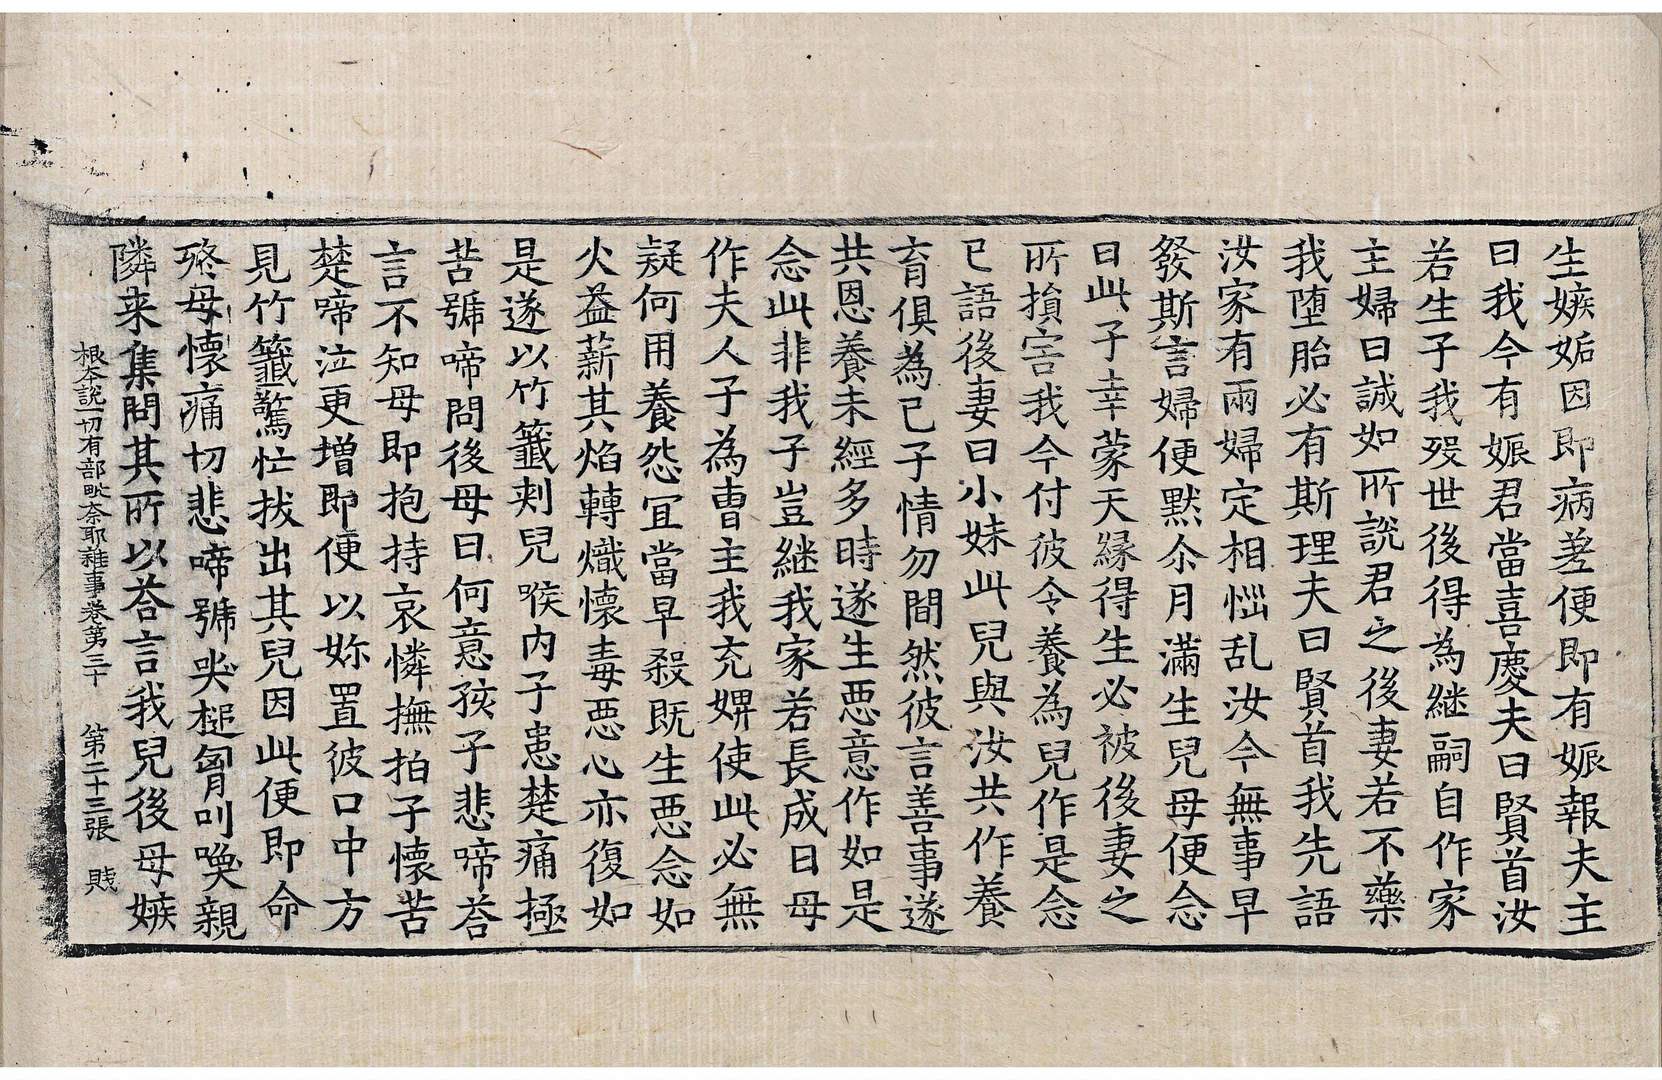 生嫉妬因即病差便即有娠報夫主
曰我今有娠君當喜慶夫曰賢首汝
若生子我殁世後得為継嗣自作家
主婦曰誠如所說君之後妻若不藥
我堕胎必有斯理夫曰賢首我先語
汝家有兩婦定相惱乱汝今無事早
發斯言婦便默余月滿生兒母便念
曰此子幸蒙天縁得生必被後妻之
所損害我今付彼令養為兒作是念
已語後妻曰小妹此兒與汝共作養
育俱為己子情勿間然彼言善事遂
共恩養未經多時遂生惡意作如是
念此非我子豈継我家若長成日母
作夫人子為曹主我充婢使此必無
疑何用養怨冝當早殺既生惡念如
火益薪其焰轉熾懷毒惡心亦復如
是遂以竹籤刾兒喉内子患楚痛極
苦號啼問後母曰何意孩子悲啼荅
言不知母即抱持哀憐撫拍子懷苦
楚啼泣更增即便以妳置彼口中方
見竹籤驚忙拔出其兒因此便即命
終母懷痛切悲啼號哭搥胷叫喚親
隣来集問其所以荅言我兒後母嫉
根本說一切有部毗奈耶雜事卷第三十 第二十三張 賤